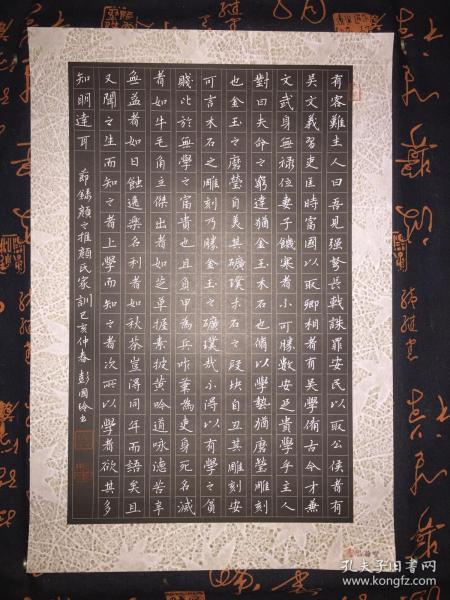 有客難主人曰吾見强弩長戟誅罪安民以取公侯者有
矣文義習吏匡時富國以取卿相者有矣學備古今才兼
文武身無祿位妻子饑寒者不可勝數安足貴學乎主人
對曰夫命之窮達猶金玉木石也脩以學藝猶磨瑩雕刻
也金玉之磨瑩自美其礦璞木石之段塊自丑其雕刻安
可言木石之雕刻乃勝金玉之礦璞哉不得以有學之貧
賤比於無學之富貴也且身甲為兵咋筆為吏身死名滅
者如牛毛角立傑出者如芝草握素披黄吟道咏德苦辛
無益者如日蝕逸樂名利者如秋荼豈得同年而語矣且
又聞之生而知之者上學而知之者次所以學者欲其多
知明達耳
節錄顏之推顏氏家訓己亥仲春彭國玲書
孔夫子旧书网
www.kongfz.com